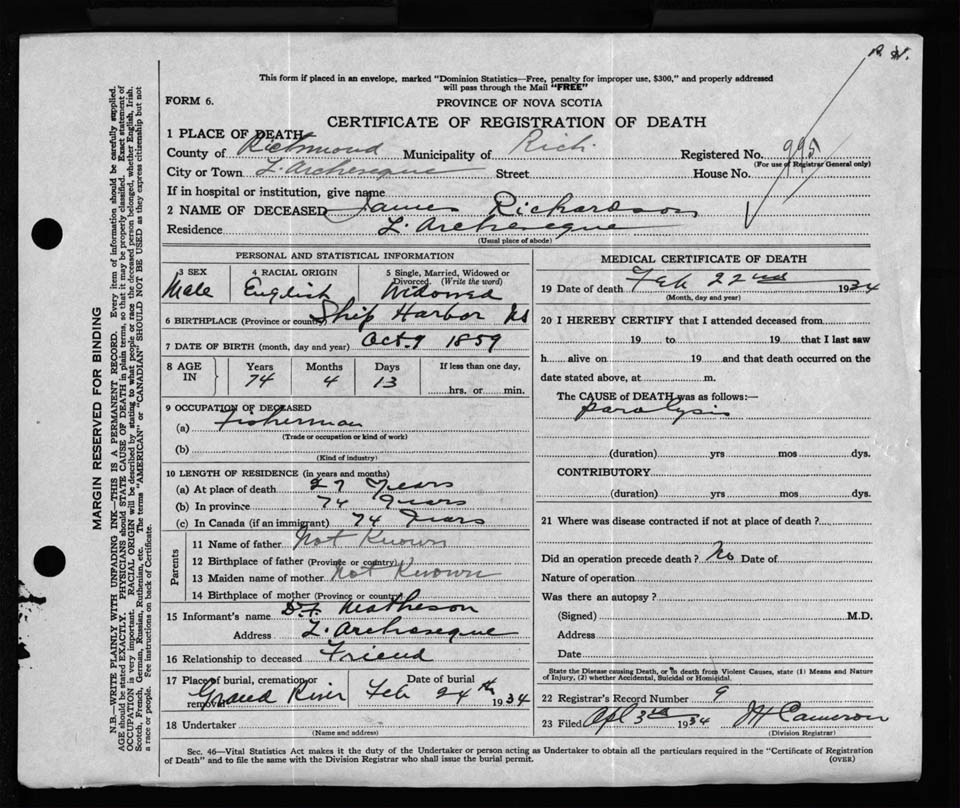 R. N.
This form if placed in an envelope, marked "Dominion Statistics—Free, penalty for improper use, $300," and properly addressed
will pass through the Mail "FREE"
FORM 6.
PROVINCE OF NOVA SCOTIA
CERTIFICATE OF REGISTRATION OF DEATH
1 PLACE OF DEATH
County of Richmond Municipality of Rich. Registered No. 995
(For use of Registrar General only)
City or Town L'Archeseque Street House No.
If in hospital or institution, give name
2 NAME OF DECEASED James Richardson
Residence L. Archeseque
(Usual place of abode)
PERSONAL AND STATISTICAL INFORMATION
3 SEX 4 RACIAL ORIGIN 5 Single, Married, Widowed or
Divorced. (Write the word)
Male English Widowed
6 BIRTHPLACE (Province or country) Ship Harbor NS
7 DATE OF BIRTH (month, day and year) Oct. 9 1859
8 AGE IN Years Months Days If less than one day,
74 4 13 hrs. or min.
9 OCCUPATION OF DECEASED
(a) Fisherman
(Trade or occupation or kind of work)
(b)
(Kind of industry)
10 LENGTH OF RESIDENCE (in years and months)
(a) At place of death 27 Years
(b) In province 74 Years
(c) In Canada (if an immigrant) 74 Years
Parents
11 Name of father Not Known
12 Birthplace of father (Province or country)
13 Maiden name of mother Not Known
14 Birthplace of mother (Province or country)
15 Informant's name D. F. Matheson
Address L. Archeseque
16 Relationship to deceased Friend
17 Place of burial, cremation or removal Date of burial
Grand River Feb 24th 1934
18 Undertaker
(Name and address)
MEDICAL CERTIFICATE OF DEATH
19 Date of death Feb 22nd 1934
(Month, day and year)
20 I HEREBY CERTIFY that I attended deceased from
19 to 19 that I last saw
h alive on 19 and that death occurred on the
date stated above, at m.
The CAUSE of DEATH was as follows:—
paralysis
(duration) yrs mos dys.
CONTRIBUTORY
(duration) yrs mos dys.
21 Where was disease contracted if not at place of death?
Did an operation precede death? No Date of
Nature of operation
Was there an autopsy?
(Signed) M.D.
Address
Date
State the Disease causing Death, or in death from Violent Causes, state (1) Means and Nature
of Injury, (2) whether Accidental, Suicidal or Homicidal.
22 Registrar's Record Number 9
23 Filed Apl 3rd 1934 JH Cameron
(Division Registrar)
Sec. 46—Vital Statistics Act makes it the duty of the Undertaker or person acting as Undertaker to obtain all the particulars required in the "Certificate of Registration
of Death" and to file the same with the Division Registrar who shall issue the burial permit. (OVER)
MARGIN RESERVED FOR BINDING
N.B.—WRITE PLAINLY WITH UNFADING INK—THIS IS A PERMANENT RECORD. Every item of information should be carefully supplied.
AGE should be stated EXACTLY. PHYSICIANS should STATE CAUSE OF DEATH in plain terms, so that it may be properly classified. Exact statement of
OCCUPATION is very important. RACIAL ORIGIN will be described by stating to what people or race the deceased person belonged, whether English, Irish,
Scotch, French, German, Russian, Ruthenian, etc. The terms "AMERICAN" or "CANADIAN" SHOULD NOT BE USED as they express citizenship but not
a race or people. See instructions on back of Certificate.